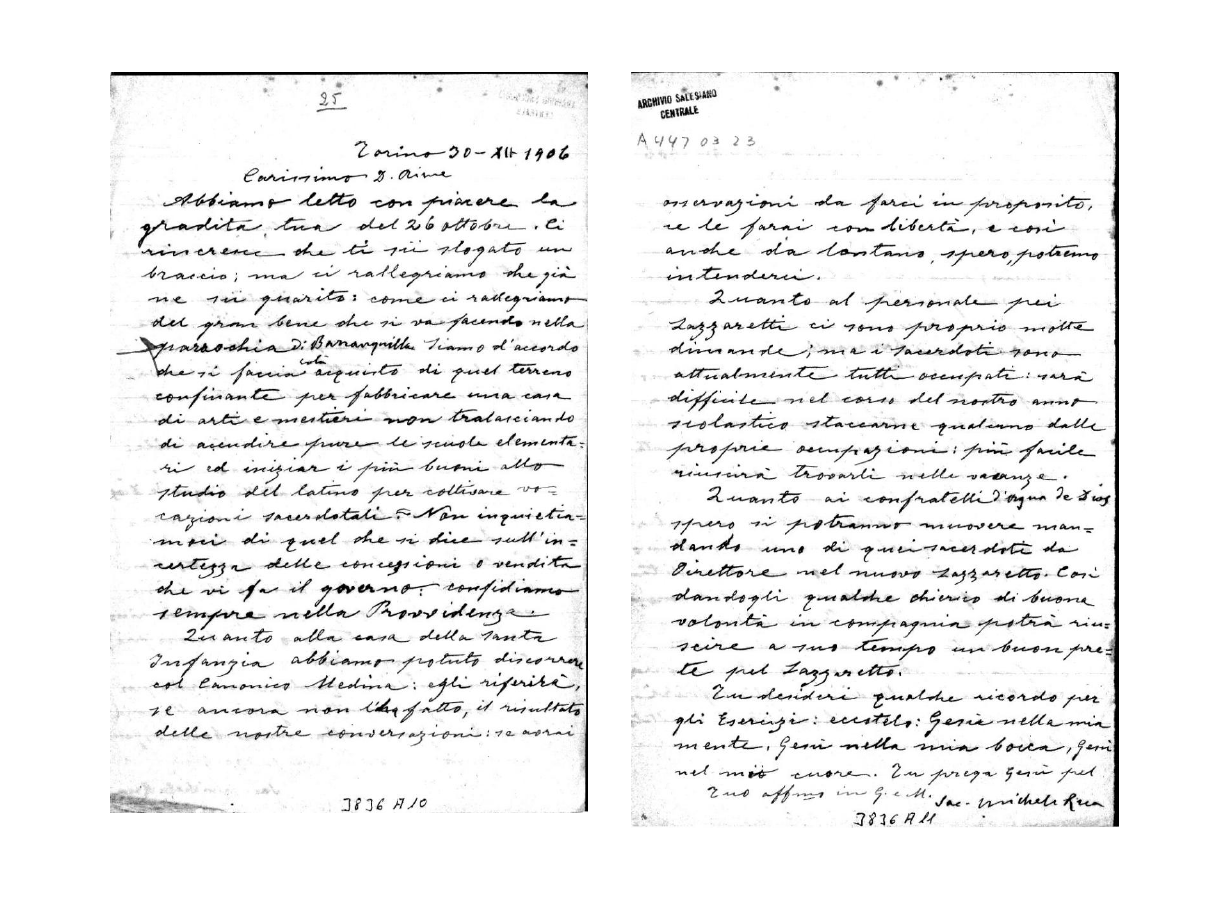 25
Torino 30-XII 1906
Carissimo D. Rime
Abbiamo letto con piacere la
gradita tua del 26 ottobre. Ci
rincresce che ti sii slogato un
braccio; ma ci rallegriamo che già
ne sii guarito: come ci rallegriamo
del gran bene che si va facendo nella
parrochia di Barranquilla. Siamo d'accordo
che si faccia acquisto di quel terreno
confinante per fabbricare una casa
di arti e mestieri non tralasciando
di accudire pure le scuole elementa=
ri ed iniziar i più buoni allo
studio del latino per coltivare vo=
cazioni sacerdotali. Non inquietia=
moci di quel che si dice sull'in=
certezza delle concessioni o vendita
che vi fa il governo: confidiamo
sempre nella Provvidenza.
Quanto alla casa della Santa
Infanzia abbiamo potuto discorrere
col Canonico Medina: egli riferirà,
se ancora non l'ha fatto, il risultato
delle nostre conversazioni: se avrai
3836 A10
ARCHIVIO SALESIANO
CENTRALE
A 447 03 23
osservazioni da farci in proposito,
ce le farai con libertà, e così
anche da lontano, spero, potremo
intenderci.
Quanto al personale pei
Lazzaretti ci sono proprio molte
dimande; ma i sacerdoti sono
attualmente tutti occupati: sarà
difficile nel corso del nostro anno
scolastico staccarne qualcuno dalle
proprie occupazioni: più facile
riuscirà trovarli nelle vacanze.
Quanto ai confratelli d'agua de Dios
spero si potranno muovere man=
dando uno di quei sacerdoti da
Direttore nel nuovo Lazzaretto. Così
dandogli qualche chierico di buona
volontà in compagnia potrà riu=
scire a suo tempo un buon pre=
te pel Lazzaretto.
Tu desideri qualche ricordo per
gli Esercizi: eccotelo: Gesù nella mia
mente, Gesù nella mia bocca, Gesù
nel mio cuore. Tu prega Gesù pel
Tuo affmo in G. e M. Sac. Michele Rua
3836 A11